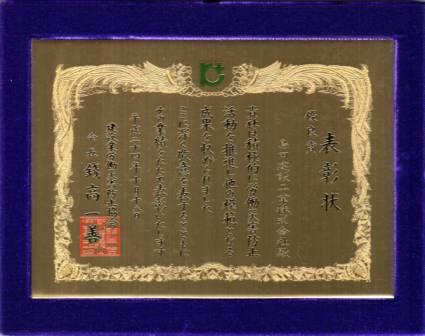 表彰状
優良賞
貴社は積極的に労働災害防止
活動を推進し他の模範となる
成果を収められました
ここに深く敬意を表するとともに
その業績をたたえ表彰いたします
平成二十四年十月十八日
建設業労働災害防止協会
会長 錢高一善